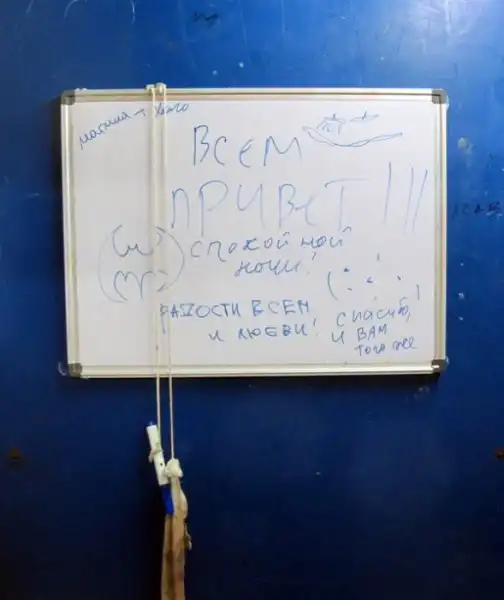 ВСЕМ
ПРИВЕТ!!!
спокойной
ночи!
РАДОСТИ ВСЕМ
И ЛЮБВИ!
спасибо,
и ВАМ
того же!